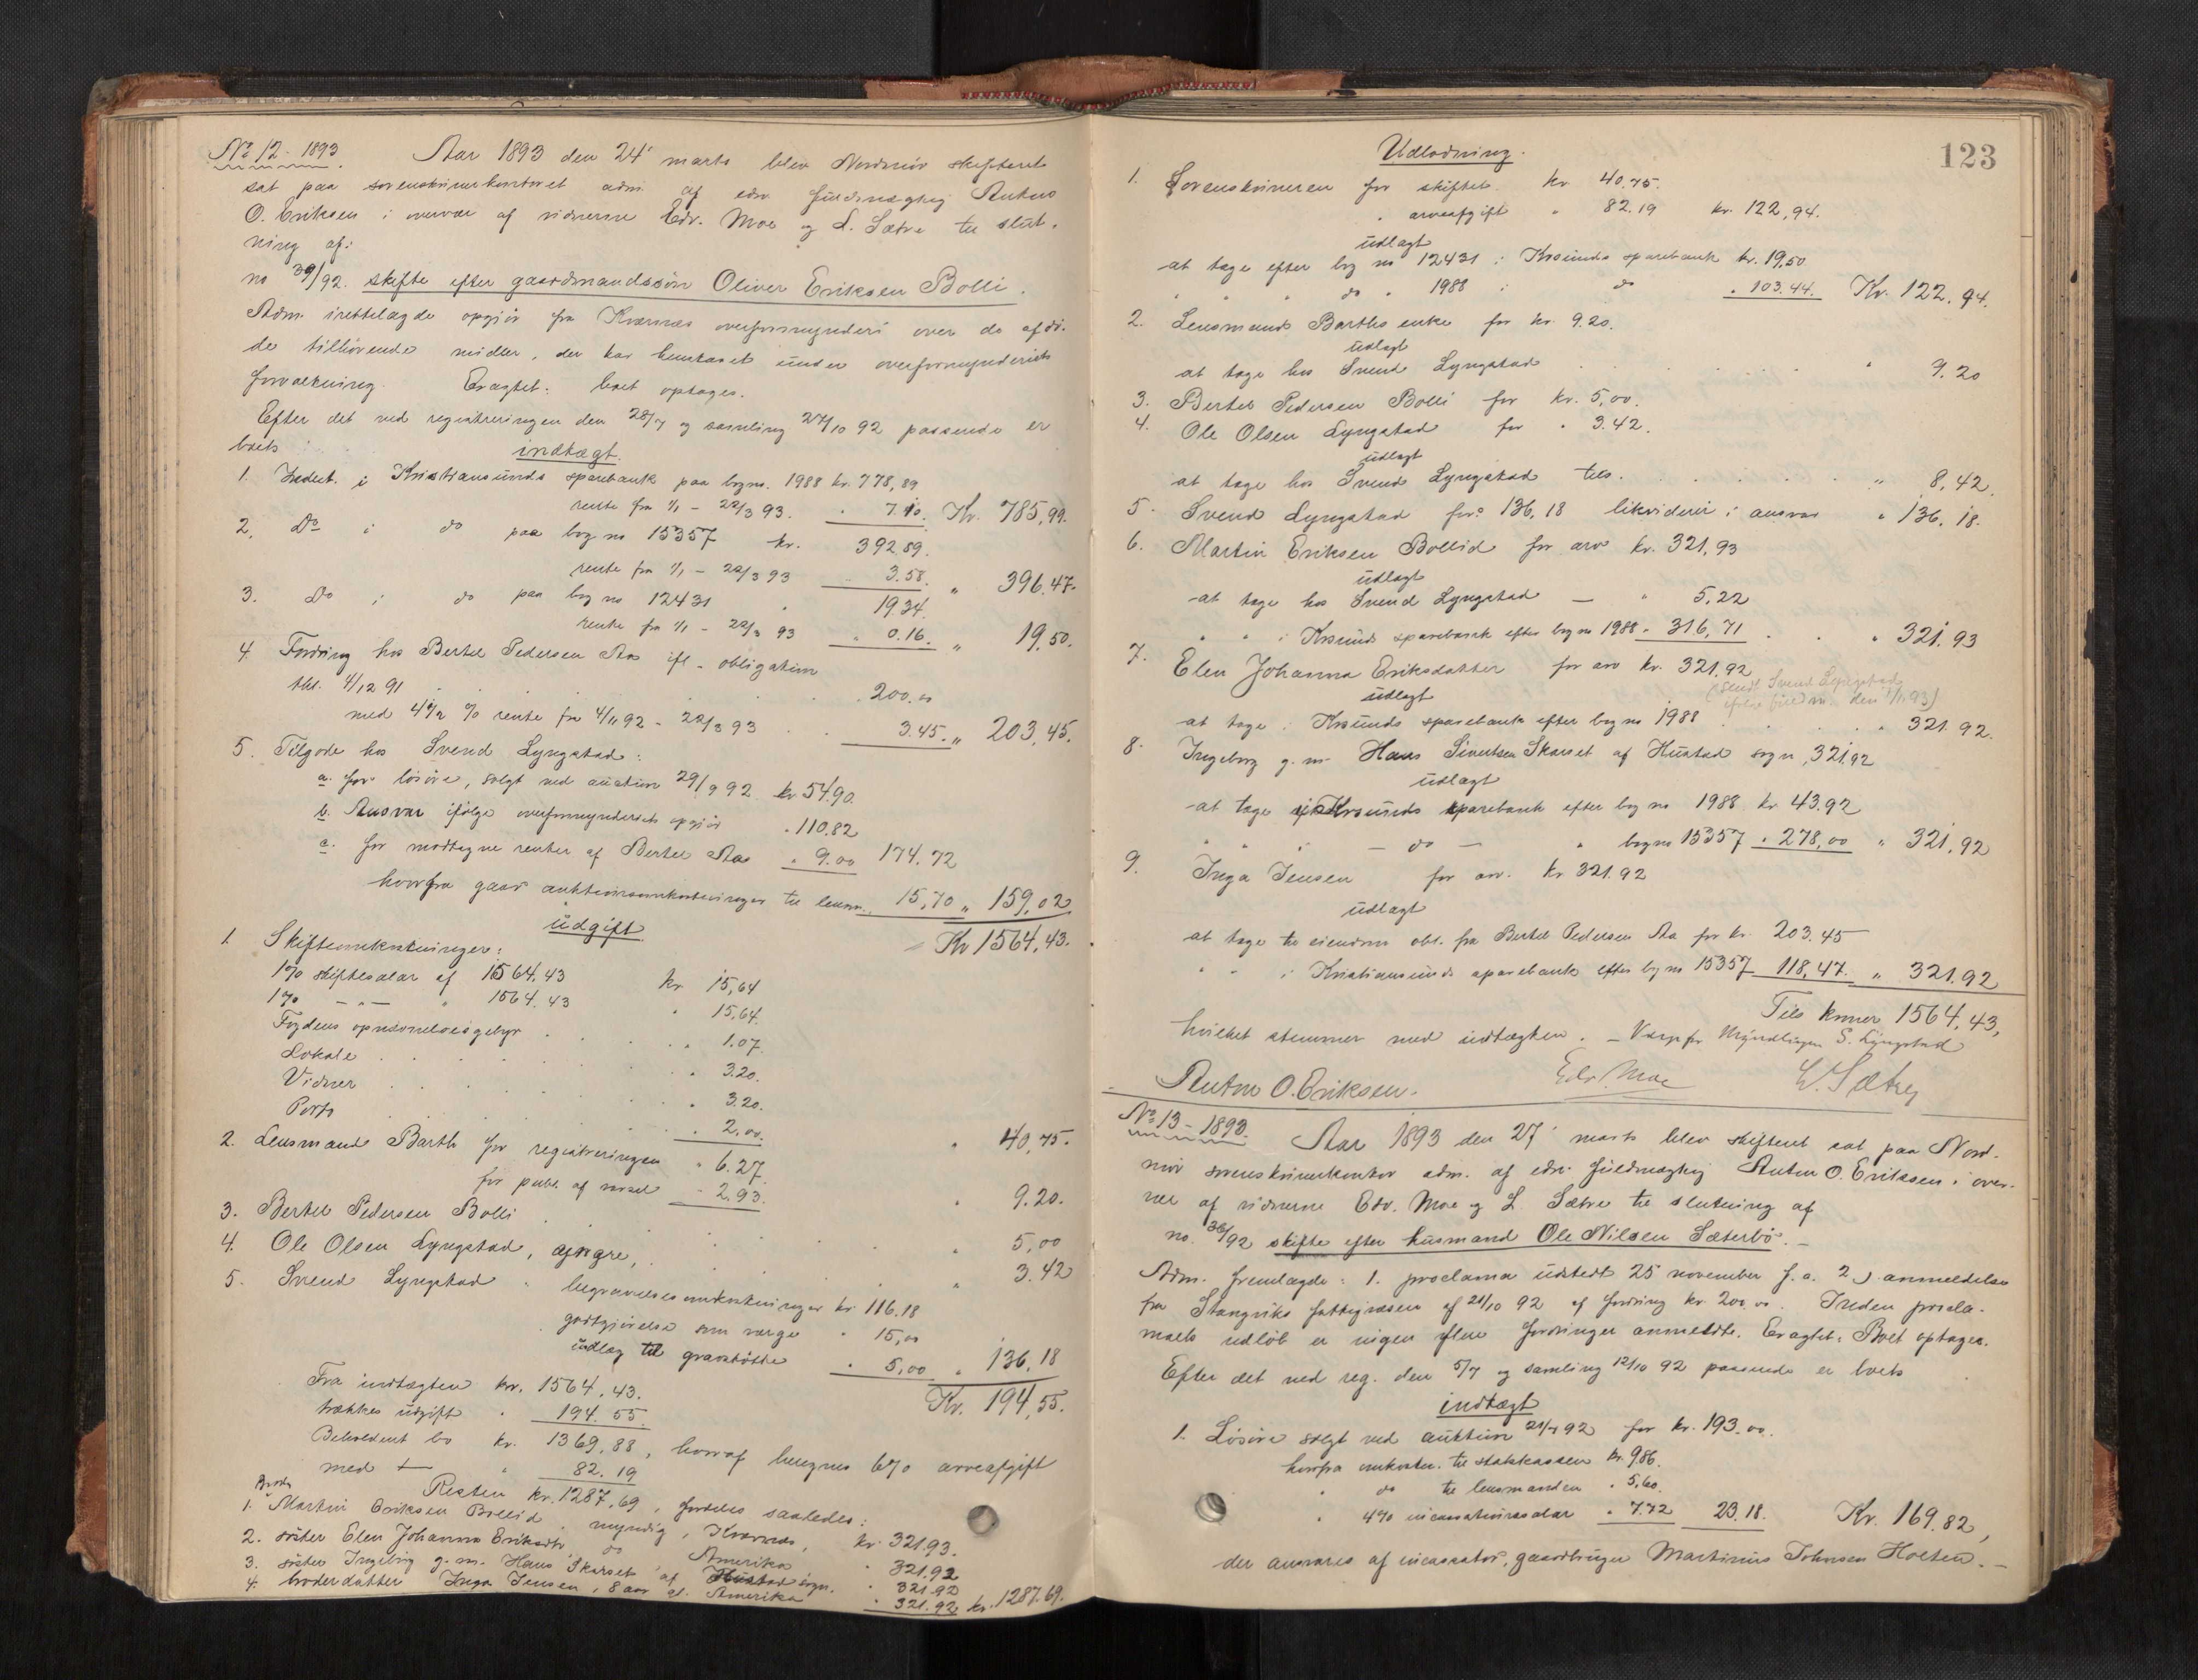 No 12 - 1893. Aar 1893 den 24' marts blev Nordmør skifteret
sat paa sorenskriverkontoret adm. af edsv. fuldmægtig Anton
O. Eriksen i overvær af vidnerne Edv. Moe og L. Sætre til slut-
ning af:
no 39/92. skifte efter gaardmandssøn Oliver Eriksen Bolli.
Adm. irettelagde opgjør fra Kværnes overformynderi over de afdø-
de tilhørende midler, der har henstaaet under overformynderiets
forvaltning. Eragtet: boet optages.
Efter det ved registreringen den 28/7 og samling 27/10 92 passerede er
boets
indtægt.
1. Indest. i Kristiansunds sparebank paa bogno. 1988 kr. 778,89
rente fra 1/1 - 22/3 93. " 7.10. Kr. 785,99.
2. Do i do paa bog no 15357 kr. 392.89.
rente fra 1/1 - 22/3 93 3.58. " 396.47.
3. Do i do paa bog no 12431 " 19.34
rente fra 1/1 - 22/3 93 " 0.16. " 19,50.
4. Fordring hos Bertel Pedersen Aas ifl. obligation
tbl. 4/12 91 . . . 200.00
med 4 1/2 % rente fra 4/11 92 - 22/3 93 . . 3.45. " 203,45.
5. Tilgode hos Svend Lyngstad:
a. for løsøre, solgt ved auktion 29/9 92 kr 54.90.
b. Ansvar ifølge overformynderiets opgjør " 110.82
c. for modtagne renter af Bertel Aas " 9.00 174.72
hvorfra gaar auktionsomkostninger til lensm. 15,70 " 159,02
Kr 1564,43.
udgift.
1. Skifteomkostninger:
1% skiftesalar af 1564.43 kr 15,64
1% - " - " 1564.43 " 15,64.
Fogdens opnævnelsesgebyr . . . " 1.07.
Lokale . . . " 3.20.
Vidner . . . " 3.20.
Porto . . . " 2,00. " 40,75.
2. Lensmand Barth for registreringen " 6.27.
for publ. af varsel - 2.93. " 9.20.
3. Bertel Pedersen Bolli . . . " 5,00
4. Ole Olsen Lyngstad, yngre, . . . " 3.42
5. Svend Lyngstad " begravelsesomkostninger kr 116.18
godtgjørelse som værge " 15,00
udlæg til gravstøtte " 5,00 " 136,18
Kr. 194,55.
Fra indtægten kr. 1564,43.
trækkes udgift " 194.55.
Beholdent bo kr. 1369,88, hvoraf beregnes 6% arveafgift
med " 82.19
Resten kr. 1287,69, fordeles saaledes:
Broder
1. Martin Eriksen Bollid, myndig, Kværnes, kr. 321.93.
2. søster Elen Johanna Eriksdtr do Amerika " 321.92
3. søster Ingebrg g. m. Hans Skarset af Hustad sogn. " 321.92
4. broderdatter Inga Jensen, 8 aar gl. Amerika " 321.92 kr. 1287.69.
123
Udlodning.
1. Sorenskriveren for skiftet. kr 40.75.
" arveafgift " 82.19 kr. 122,94.
udlagt
at tage efter bog no 12431 i Krsunds sparebank kr. 19,50
" " " do " 1988 i do " 103.44. Kr. 122.94.
2. Lensmand Barths enke for kr. 9.20.
udlagt
at tage hos Svend Lyngstad . . . " 9.20
3. Bertel Pedersen Bolli for kr. 5,00.
4. Ole Olsen Lyngstad for " 3.42.
udlagt
at tage hos Svend Lyngstad tils. . . . " 8,42.
5. Svend Lyngstad for 136,18 likviderer i ansvar " 136.18.
6. Martin Eriksen Bollid for arv kr. 321,93
udlagt
at tage hos Svend Lyngstad — " 5,22
" " i Krsunds sparebank efter bog no 1988 " 316,71 . . " 321.93
7. Elen Johanna Eriksdatter for arv kr. 321.92
(sendt Svend Lyngstad
udlagt
efter fuldm. den 1/11 93)
at tage i Krsunds sparebank efter bog no 1988 . . . " 321.92.
8. Ingeborg g. m. Hans Sivertsen Skarset af Hustad sogn, 321,92
udlagt
at tage i Krsunds sparebank efter bog no 1988 kr 43.92
" " " — do — " bog no 15357 " 278,00 " 321,92
9. Inga Jensen for arv. kr 321.92
udlagt
at tage til eiendom obl. fra Bertel Pedersen Aa for kr. 203.45
" " i Kristiansunds sparebank efter bog no 15357 118,47. " 321.92
Tils kroner 1564,43,
hvilket stemmer med indtægten. — Værge for Myndlingen S. Lyngstad
Anton O. Eriksen. Edv. Moe L. Sætre
No 13 - 1893. Aar 1893 den 27' marts blev skifteret sat paa Nord-
mør sorenskriverkontor adm. af edsv. fuldmægtig Anton O. Eriksen i over-
vær af vidnerne Edv. Moe og L. Sætre til slutning af
no. 36/92 skifte efter husmand Ole Nilsen Sæterbø. —
Adm. fremlagde: 1. proclama udstedt 25 november f. a. 2) anmeldelse
fra Stangviks fattigvæsen af 21/10 92 af fordring kr. 200.00. Inden procla-
maets udløb er ingen flere fordringer anmeldte. Eragtet: Boet optages.
Efter det ved reg. den 5/7 og samling 12/10 92 passerede er boets
indtægt
1. Løsøre solgt ved auktion 21/7 92 for kr. 193.00.
hvorfra omkostn. til statskassen kr. 9.86.
" do til lensmanden " 5,60.
" 4% incassationssalar " 7.72 23.18. Kr. 169.82,
der ansvares af incassator, gaardbruger Martinus Johnsen Holten. —